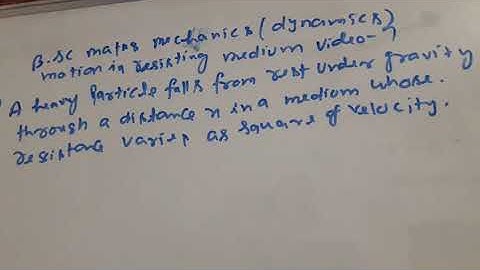 B.SC maths mechanics (dynamics)
motion in resisting medium video-1
A heavy particle falls from rest under gravity
through a distance x in a medium whose.
resistance varies as square of velocity.